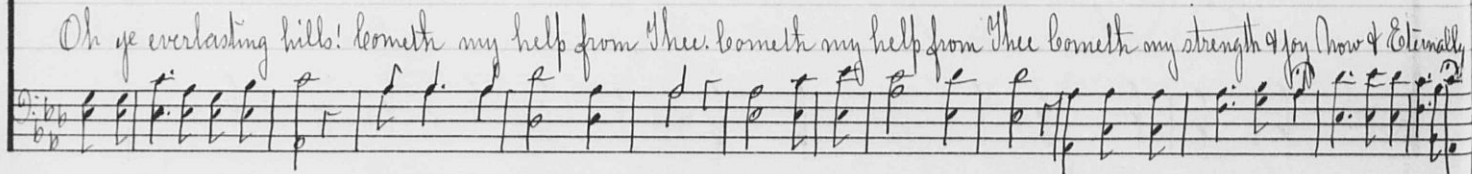 Oh ye everlasting hills! Cometh my help from Thee. Cometh my help from Thee Cometh my strength & joy Now & Eternally